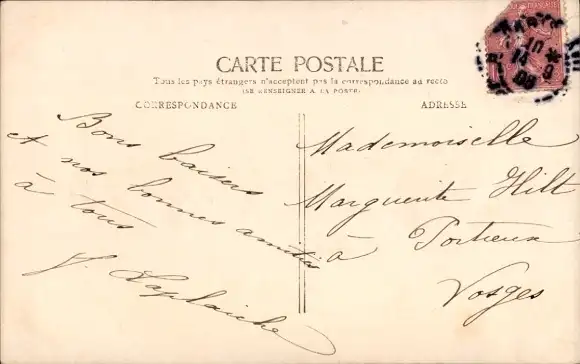 CARTE POSTALE
Tous les pays étrangers n'acceptent pas la correspondance au recto
(SE RENSEIGNER A LA POSTE)
CORRESPONDANCE
ADRESSE
Bons baisers
et nos bonnes amitiés
à tous
Mademoiselle
Marguerite Hilt
à Portieux
Vosges